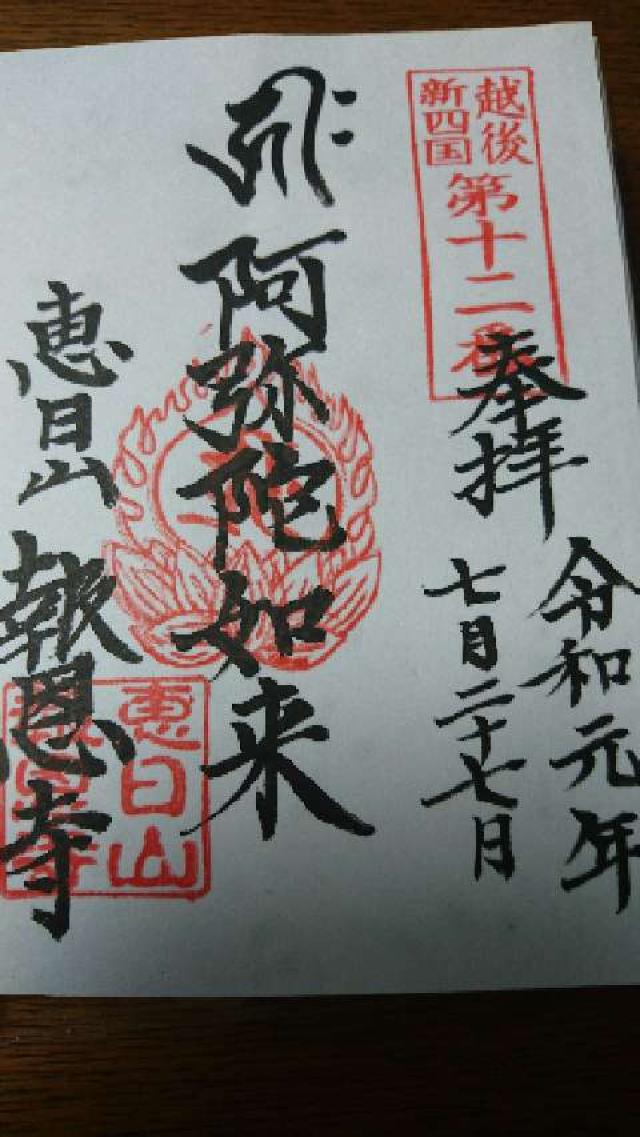 越後
新四国
第十二番
奉拝
令和元年
七月二十七日
阿弥陀如来
恵日山
報恩寺
恵日山
報恩寺